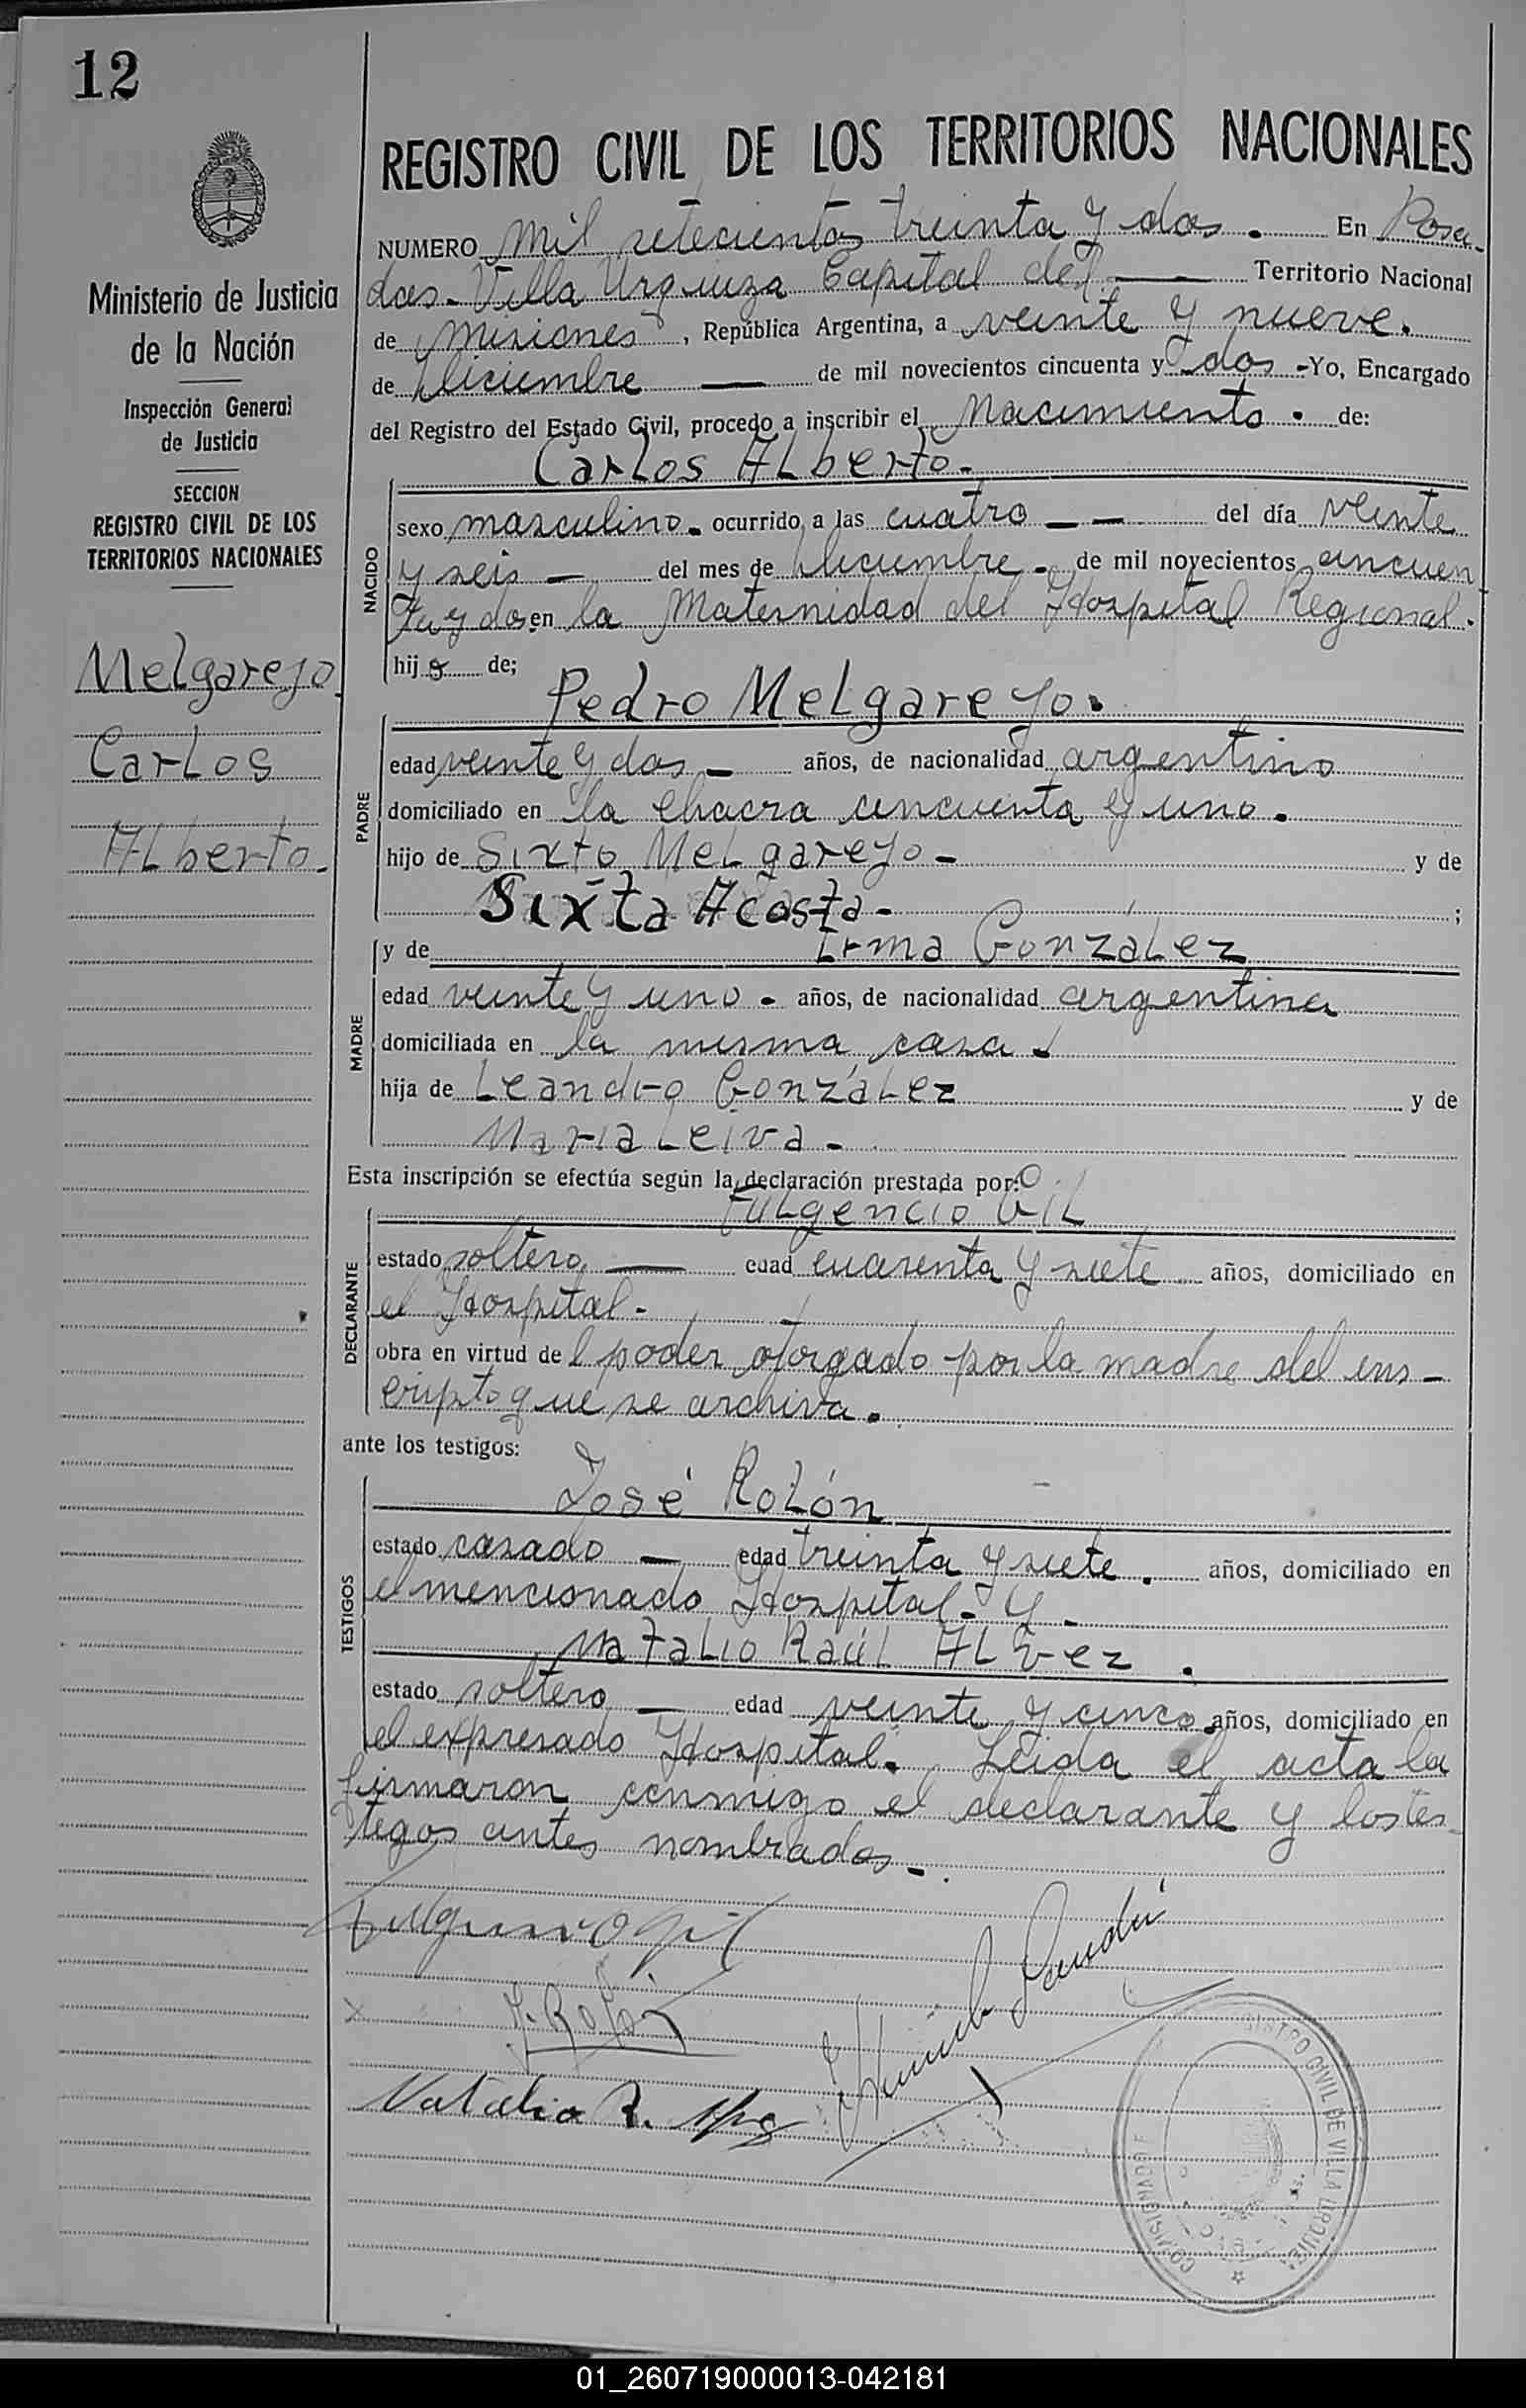 12
Ministerio de Justicia
de la Nación
Inspección General
de Justicia
SECCION
REGISTRO CIVIL DE LOS
TERRITORIOS NACIONALES
Melgarejo
Carlos
Alberto.-
REGISTRO CIVIL DE LOS TERRITORIOS NACIONALES
NUMERO Mil setecientos treinta y dos. En Posa-
das-Villa Urquiza Capital del — Territorio Nacional
de Misiones, República Argentina, a veinte y nueve.
de Diciembre — de mil novecientos cincuenta y dos -Yo, Encargado
del Registro del Estado Civil, procedo a inscribir el Nacimiento. de:
Carlos Alberto.-
NACIDO
sexo masculino. ocurrido a las cuatro — — del día veinte
y seis — del mes de Diciembre. de mil novecientos cincuen
ta y dos en la Maternidad del Hospital Regional.
hijo de;
Pedro Melgarejo.
PADRE
edad veinte y dos — años, de nacionalidad argentino
domiciliado en la chacra cincuenta y uno.
hijo de Sixto Melgarejo - y de
Sixta Acosta - ;
y de Irma González
MADRE
edad veinte y uno - años, de nacionalidad argentina
domiciliada en la misma casa.
hija de Leandro González y de
María Leiva -
Esta inscripción se efectúa según la declaración prestada por:
Fulgencio Gil
DECLARANTE
estado soltero — edad cuarenta y siete años, domiciliado en
el Hospital.-
obra en virtud del poder otorgado por la madre del ins-
cripto que se archiva.
ante los testigos:
José Rolón
TESTIGOS
estado casado — edad treinta y siete. años, domiciliado en
el mencionado Hospital. y -
Natalio Raúl Alvez.
estado soltero — edad veinte y cinco años, domiciliado en
el expresado Hospital. Leida el acta la
firmaron conmigo el declarante y los tes-
tigos antes nombrados.-
Fulgencio Gil
J. Rolón
Natalio R.
REGISTRO CIVIL DE VILLA URQUIZA
01_260719000013-042181